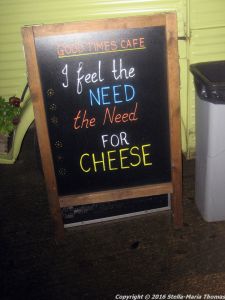 GOOD TIMES CAFE
I feel the
NEED
the Need
FOR
CHEESE
Copyright © 2016 Stella-Maria Thomas